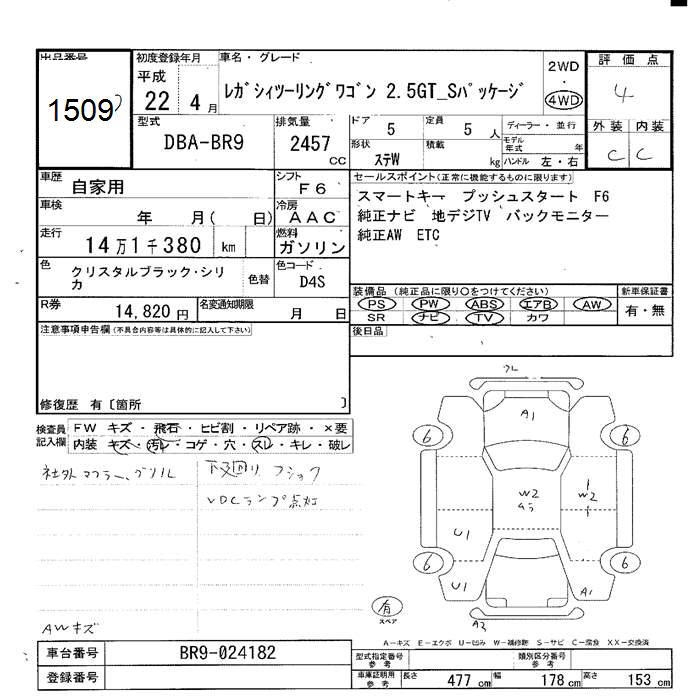 出品番号
1509
初度登録年月
平成
22 4 月
車名・グレード
レガシィツーリングワゴン 2.5GT_Sパッケージ
2WD
・
4WD
評価点
4
外装 内装
C C
型式
DBA-BR9
排気量
2457
CC
ドア
5
定員
5 人
ディーラー・並行
形状
ステW
積載
kg
モデル
年式
年
ハンドル 左・右
車歴
自家用
シフト
F6
車検
年 月( 日)
冷房
AAC
走行
14万1千380 km
燃料
ガソリン
色
クリスタルブラック・シリ
カ
色替
色コード
D4S
R券
14,820円
名変通知期限
月 日
セールスポイント(正常に機能するものに限ります)
スマートキー プッシュスタート F6
純正ナビ 地デジTV バックモニター
純正AW ETC
装備品(純正品に限り○をつけてください)
PS PW ABS エアB AW
SR ナビ TV カワ
新車保証書
有・無
後日品
注意事項申告欄(不具合内容等は具体的に記入して下さい)
修復歴 有〔箇所 〕
検査員
記入欄
FW キズ・飛石・ヒビ割・リペア跡・×要
内装 キズ・汚レ・コゲ・穴・スレ・キレ・破レ
社外マフラー、グリル
下回り フショク
VDCランプ点灯
AWキズ
A1
6
6
W2
W2
U1
6
6
U1
A1
有
スペア
A2
A-キズ E-エクボ U-凹み W-補修跡 S-サビ C-腐食 XX-交換済
車台番号
BR9-024182
登録番号
型式指定番号
参考
類別区分番号
参考
車庫証明用
参考
長さ 477 cm
幅 178 cm
高さ 153 cm